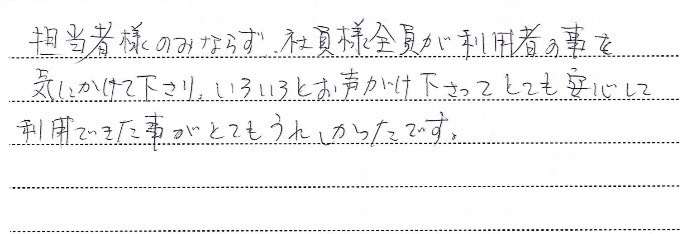 担当者様のみならず、社員様全員が利用者の事を
気にかけて下さり、いろいろとお声がけ下さってとても安心して
利用できた事がとてもうれしかったです。